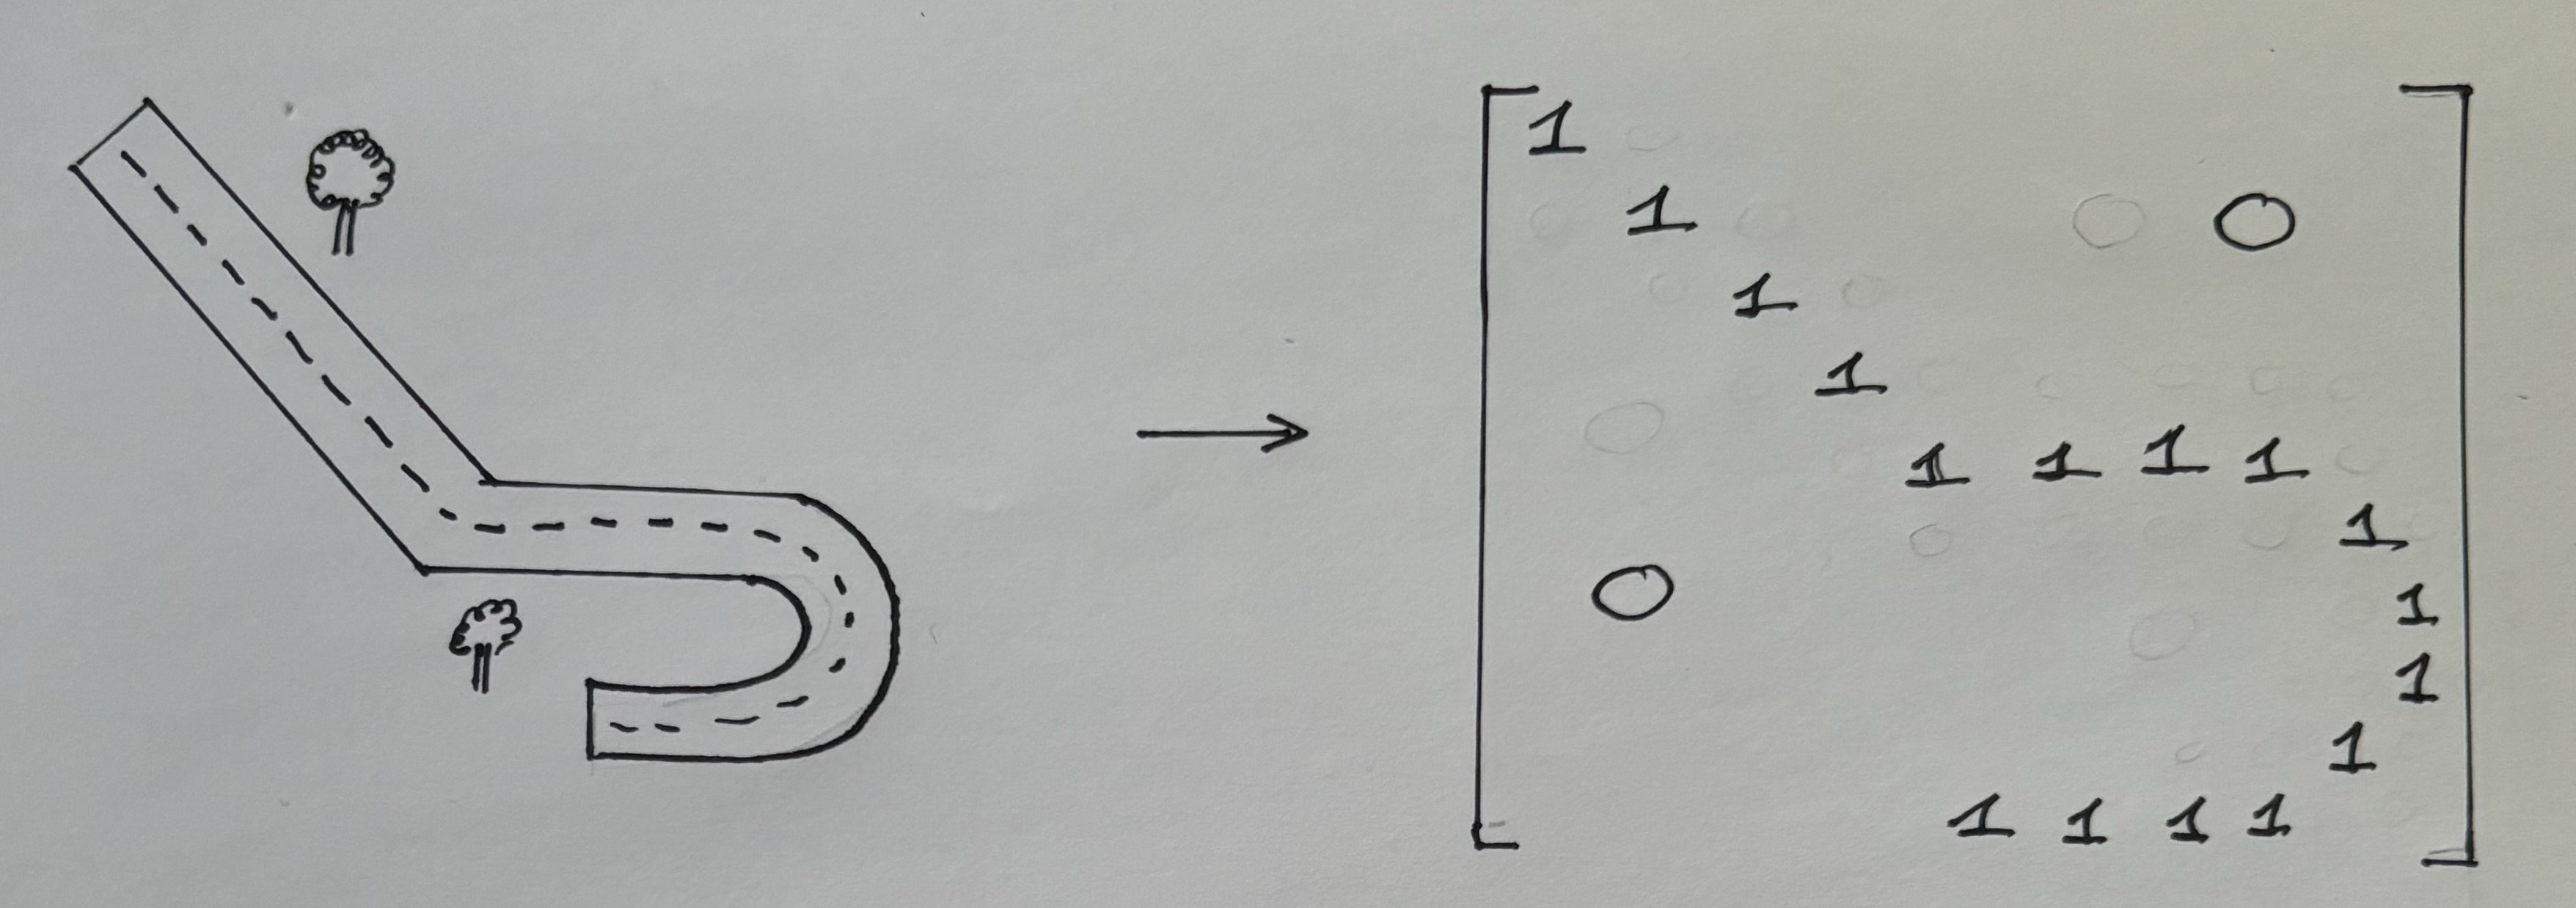 1
1 0
1
1
1 1 1 1
1
0 1
1
1
1 1 1 1